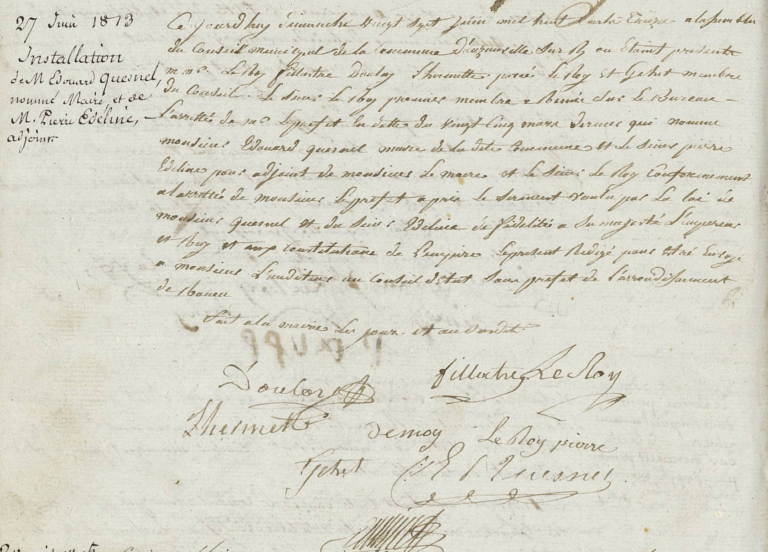 27 Juin 1813
Installation
de M. Edouard Quesnel,
nommé Maire, et de
M. Pierre Edeline,
adjoint
Ce jourd'huy dimanche vingt sept juin mil huit cent treize a la
du Conseil municipal de la Commune sur Ry ou Etant presents
m.rs Le Roy fillastre Doulay thumette Le Roy et Gehet membre
du Conseil. Le Sieur Le Roy premier membre a sur le Bureau
L'arrettée de mr. Le prefet En datte du vingt Cinq mars dernier qui nomme
monsieur Edouard quesnel maire de la dite Commune Et Le Sieur pierre
Edeline pour adjoint de monsieur Le maire et Le Sieur Le Roy Conformement
a larrettée de monsieur Le prefet a pris Le Serment voulu par La loi de
monsieur quesnel et du Sieur Edeline de fidelité a Sa majesté L'empereur
et Roy et aux Constitutions de L'empire Le present Redigé pour Estre Envoyé
a monsieur L'auditeur au Conseil d'Etat Sous prefet de L'arrondissement
de Rouen
fait a la mairie Les jour et an Susdit
Doulay fillastre Le Roy
Thumette demoy Le Roy pierre
Gehet Quesnel